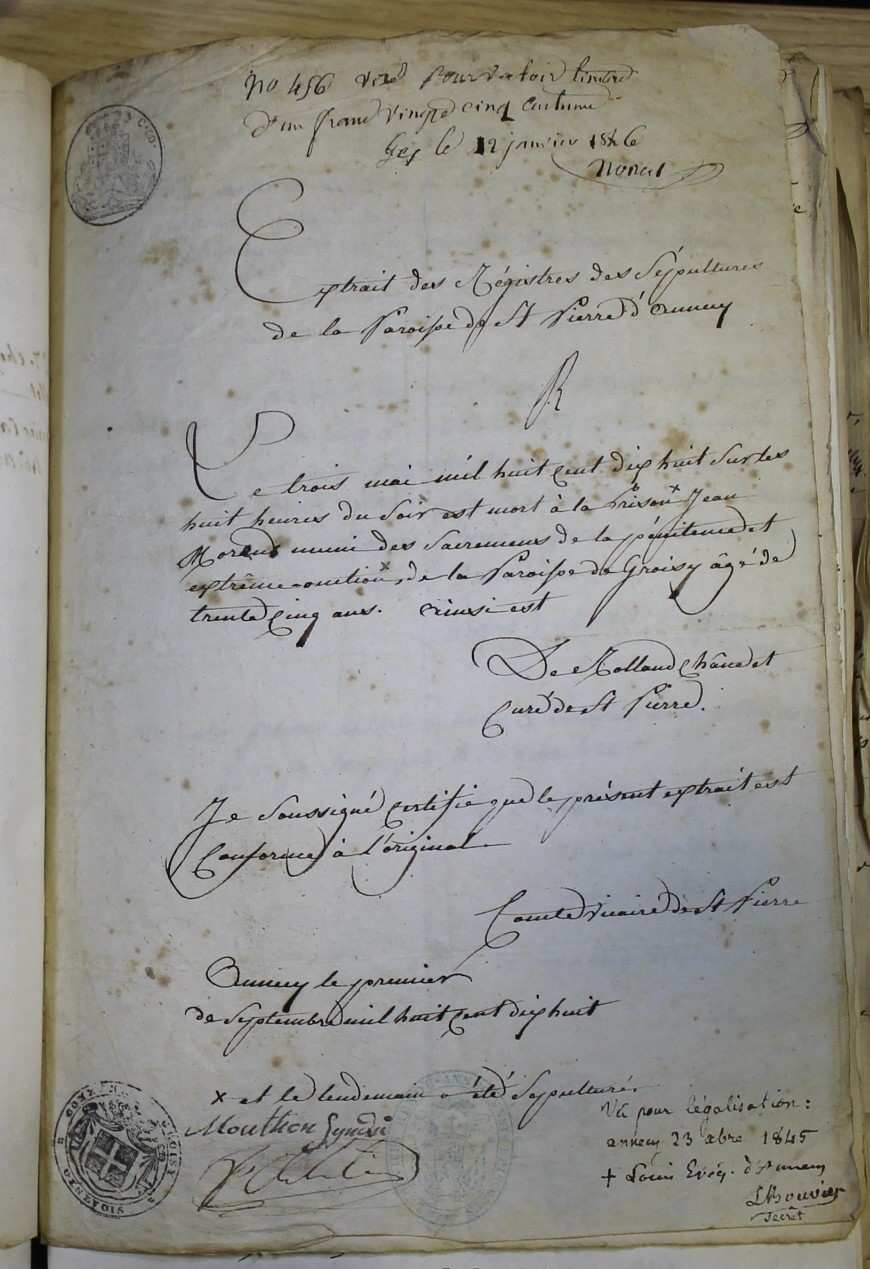 No 456 visé pour valoir timbre
d'un franc vingt cinq centimes
Gex le 12 janvier 1846
Extrait des Régistres des Sépultures
de la Paroisse de St Pierre d'Annecy
R
Le trois mai mil huit cent dix huit sur les
huit heures du Soir est mort à la Prison x Jean
Morand muni des Sacremens de la pénitence et
extrême-onction, x de la Paroisse de Groisy âgé de
trente cinq ans. Ainsi est
De Rolland Châne et
Curé de St Pierre.
Je Soussigné certifie que le présent extrait est
Conforme à l'original
Comte Vicaire de St Pierre
Annecy le premier
de Septembre mil huit cent dix huit
x et le lendemain a été Sepulturé
Mouthon Syndic
Vu pour légalisation :
annecy 23 xbre 1845
+ Louis Evêq. d'Annecy
Secrét
GROISY
GENEVOIS